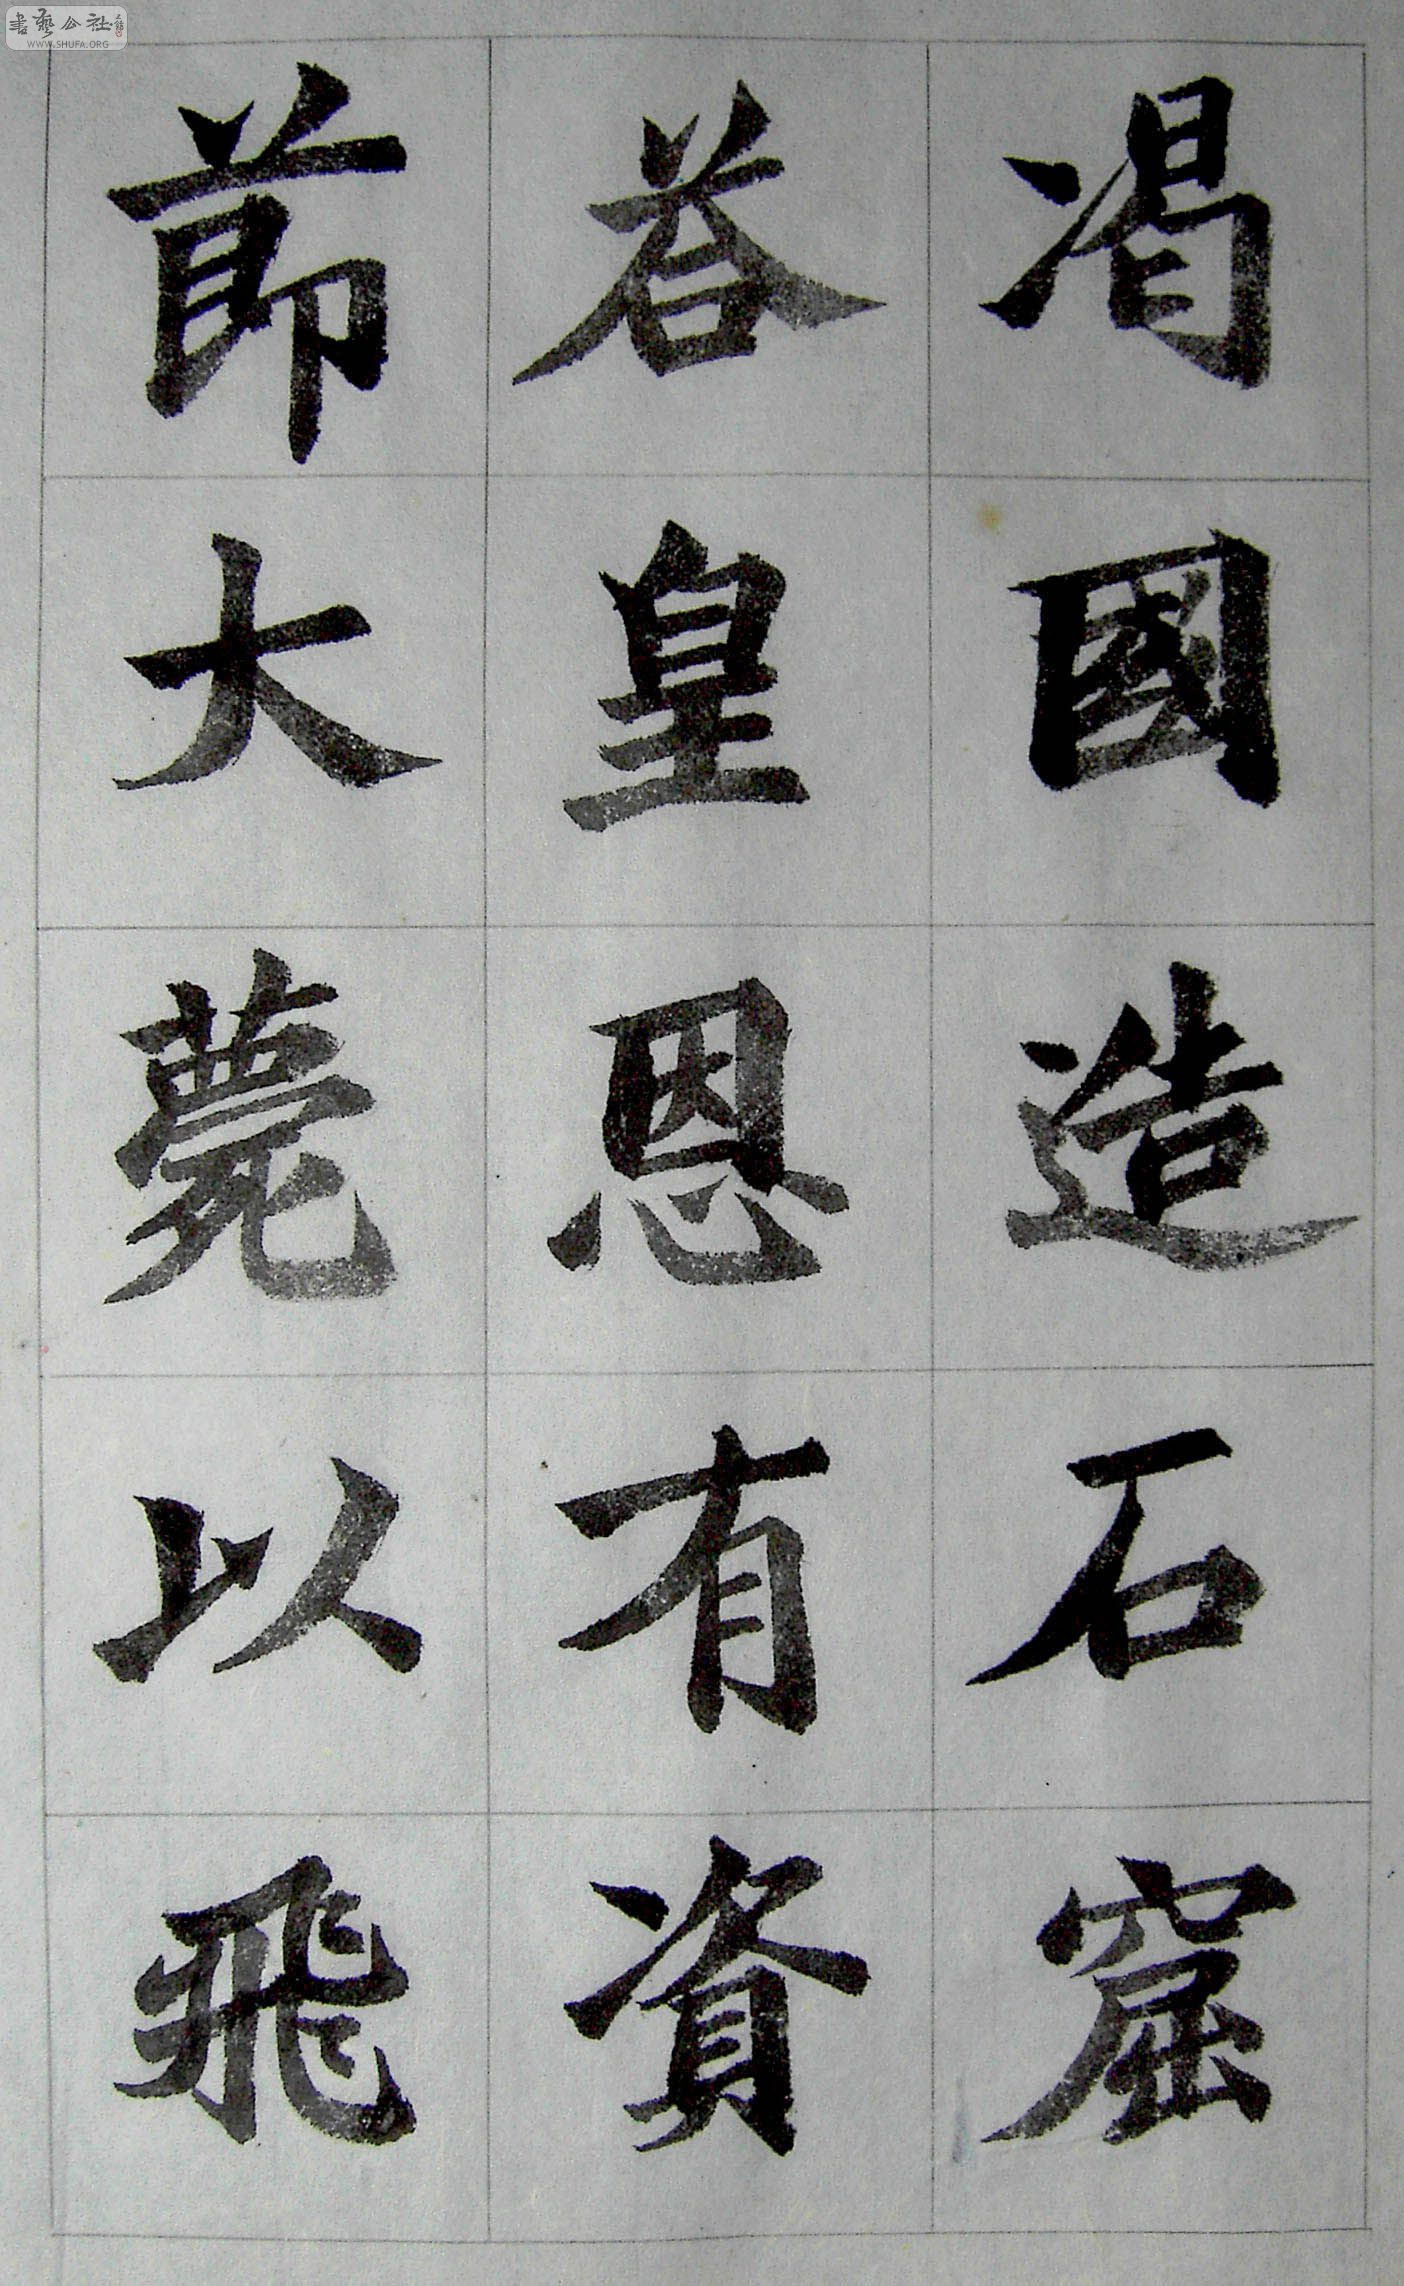 渴國造石窟
荅皇恩有資
莭大薨以飛
書藝公社
WWW.SHUFA.ORG